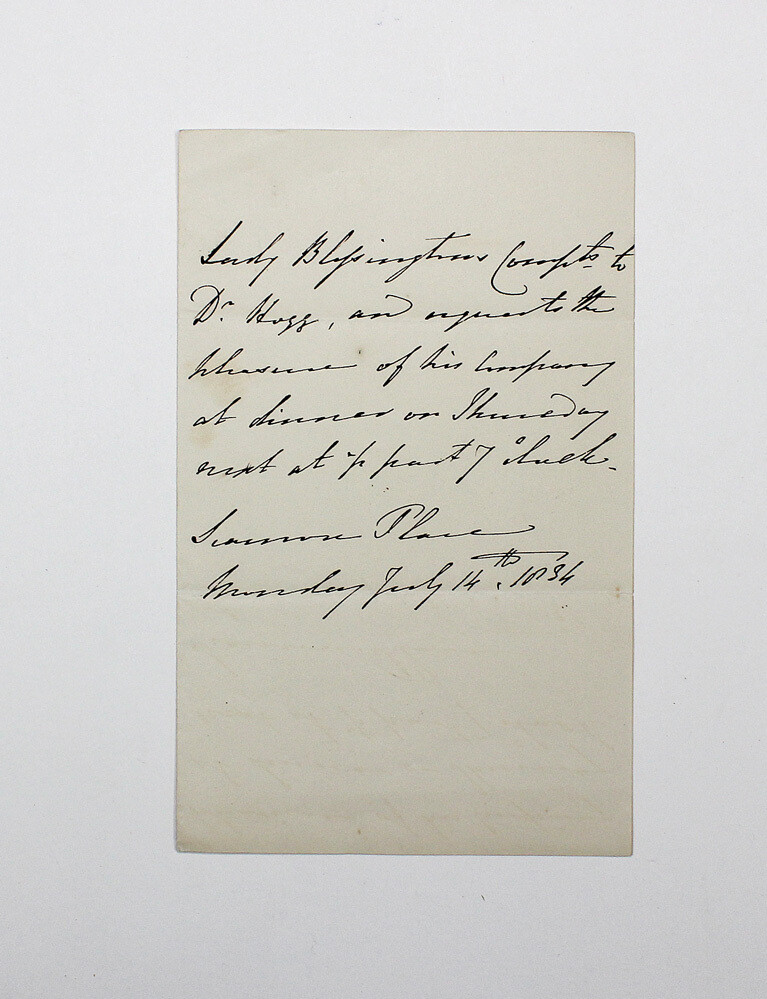 Lady Blessingtons Compts to
Dr Hogg, and requests the
pleasure of his Company
at dinner on Thursday
next at ½ past 7 oclock.
Seamore Place
Monday July 14th. 1834